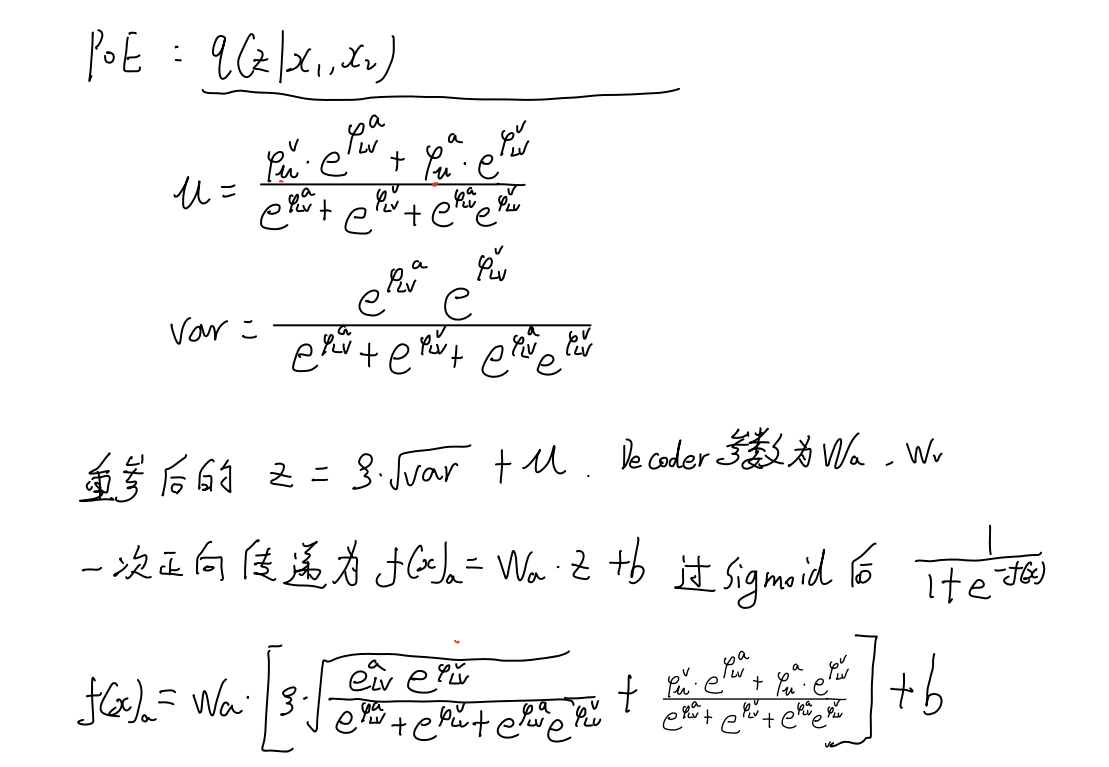 PoE : q(z|x₁, x₂)
μ = (φ_μ^v · e^{φ_{LV}^a} + φ_μ^a · e^{φ_{LV}^v}) / (e^{φ_{LV}^a} + e^{φ_{LV}^v} + e^{φ_{LV}^a} e^{φ_{LV}^v})
var = (e^{φ_{LV}^a} e^{φ_{LV}^v}) / (e^{φ_{LV}^a} + e^{φ_{LV}^v} + e^{φ_{LV}^a} e^{φ_{LV}^v})
重参后的 z = ξ·√var + μ . Decoder 参数为 Wa 、 Wv
一次正向传递为 f(x)ₐ = Wa · z + b 过 Sigmoid 后 1 / (1 + e^{-f(x)})
f(x)ₐ = Wa · [ξ·√((e_{LV}^a e^{φ_{LV}^v}) / (e^{φ_{LV}^a} + e^{φ_{LV}^v} + e^{φ_{LV}^a} e^{φ_{LV}^v})) + (φ_μ^v · e^{φ_{LV}^a} + φ_μ^a · e^{φ_{LV}^v}) / (e^{φ_{LV}^a} + e^{φ_{LV}^v} + e^{φ_{LV}^a} e^{φ_{LV}^v})] + b